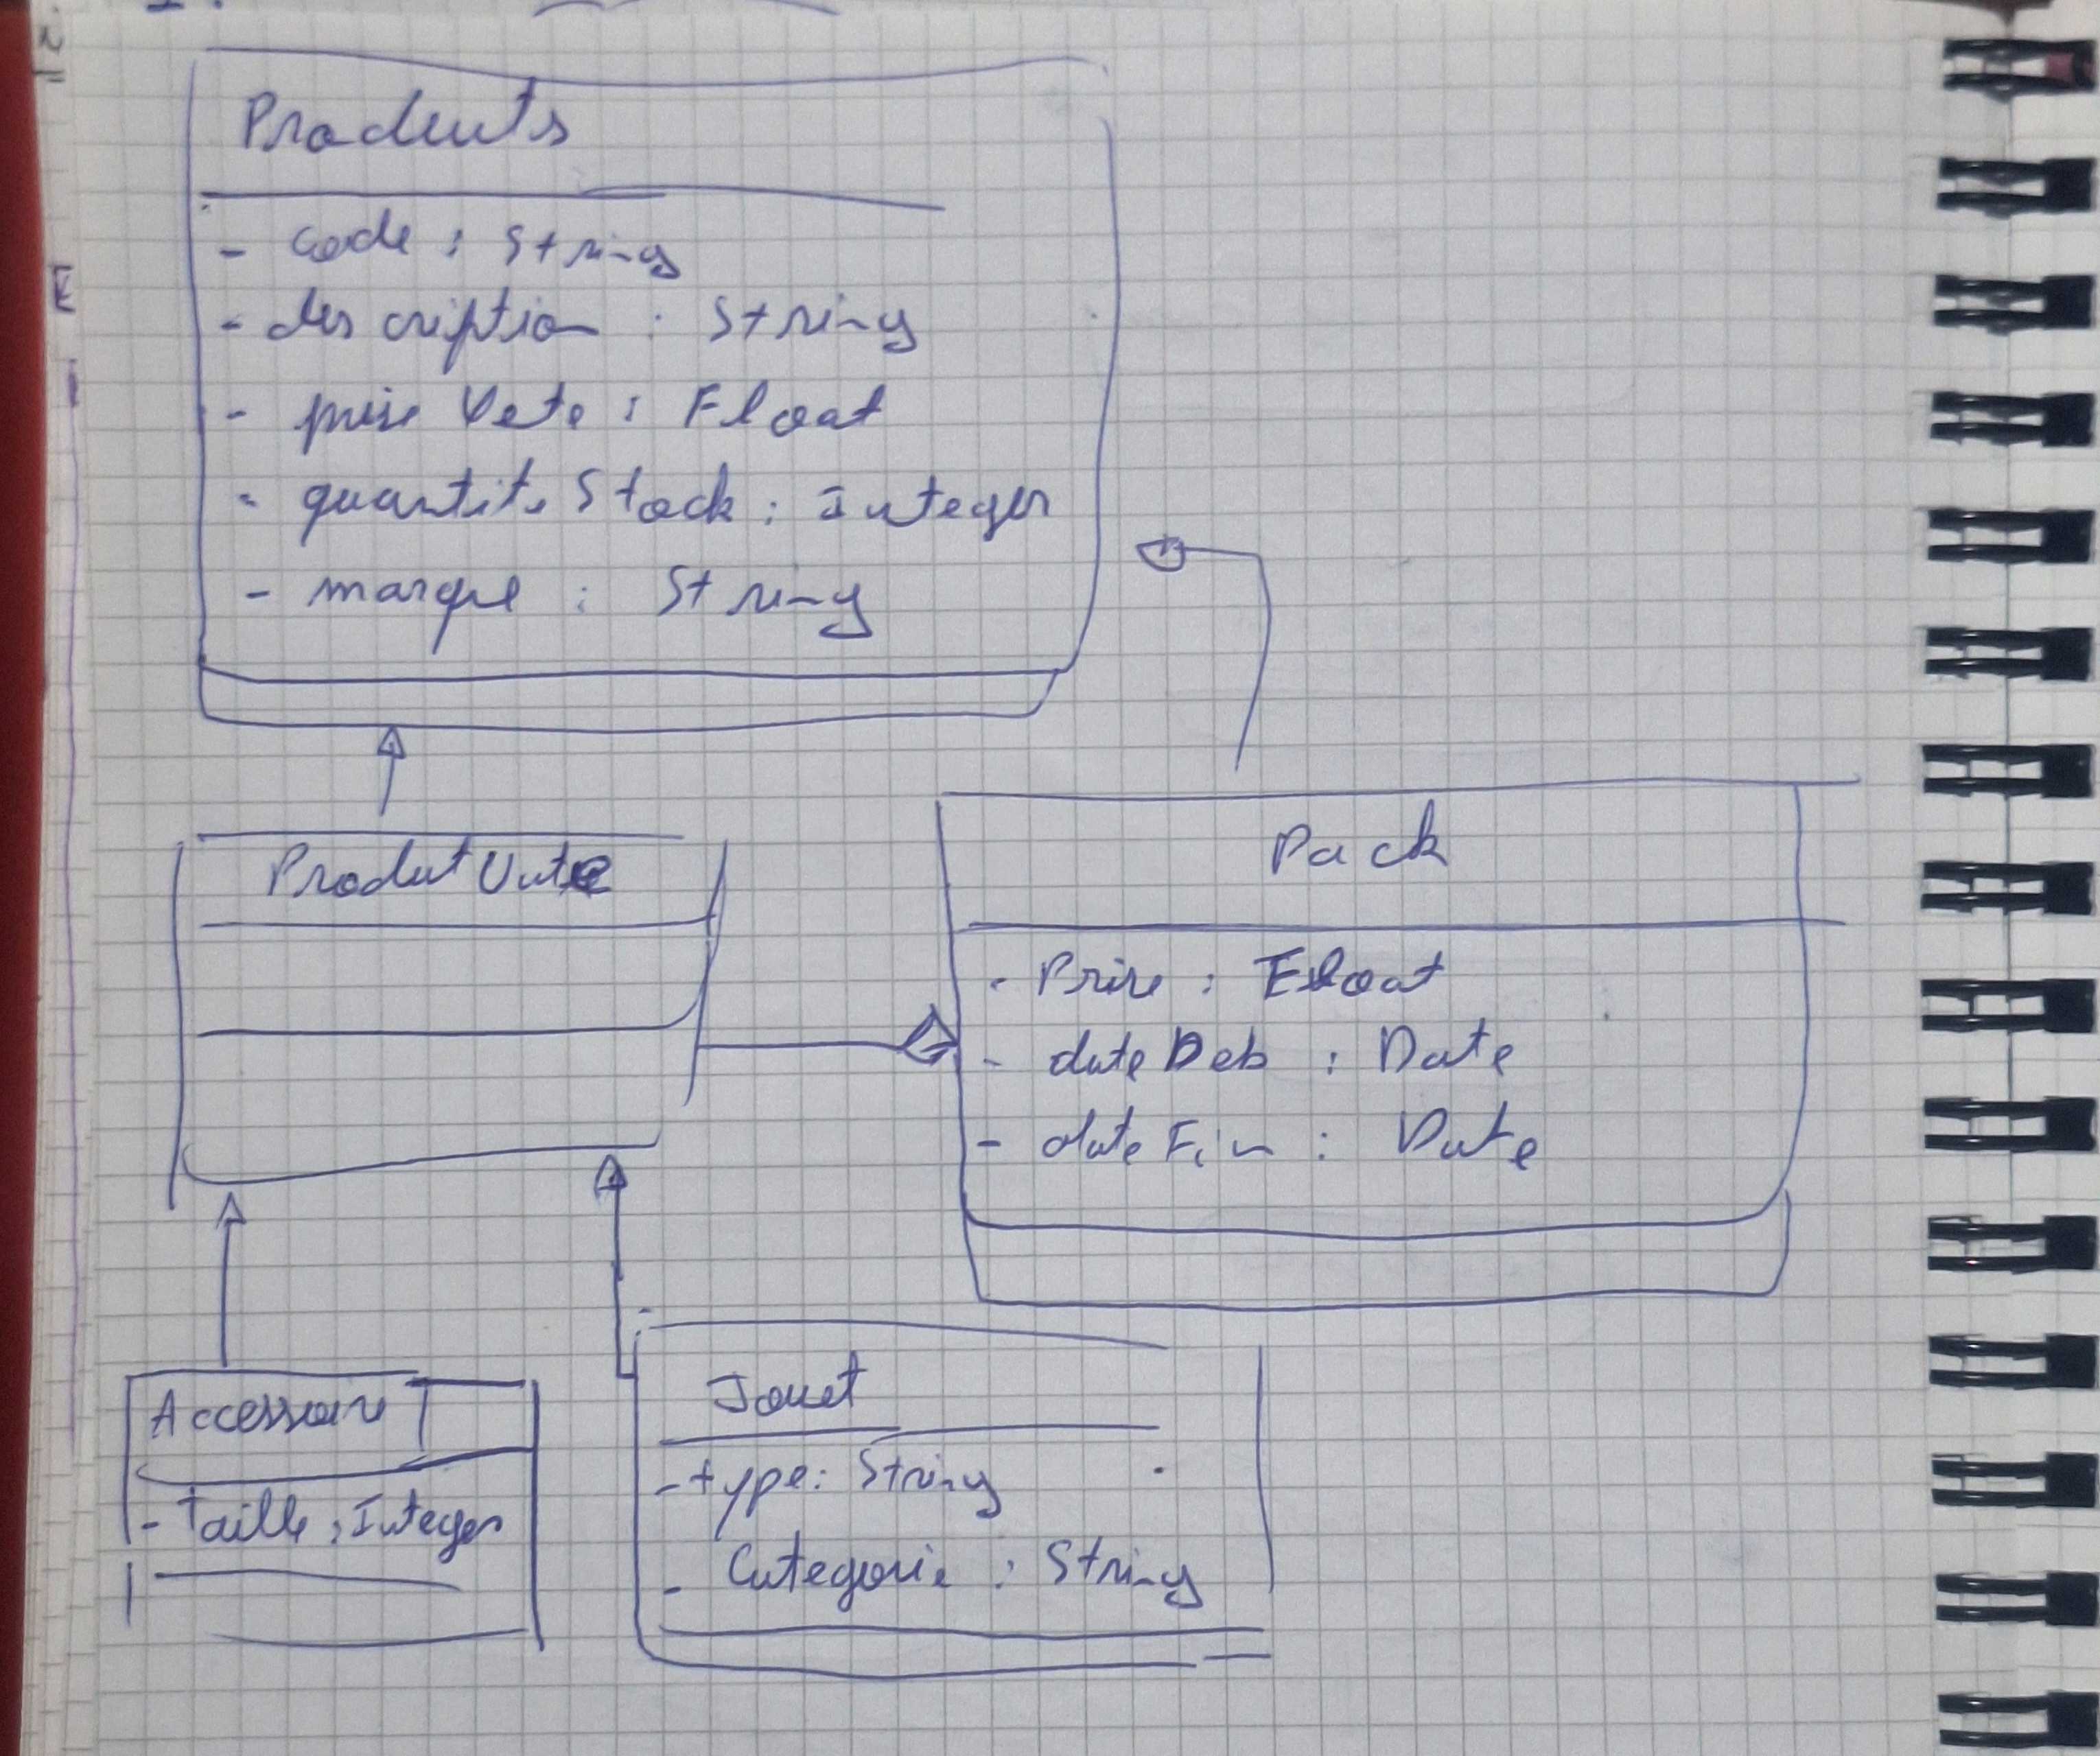 Produits
- code : String
- description : String
- prixe Vete : Float
- quantite Stock : Integer
- marque : String
Produit Unite
Pack
- Prixe : Float
- date Deb : Date
- date Fin : Date
Accessoire
- Taille : Integer
Jouet
- type : String
- Categorie : String